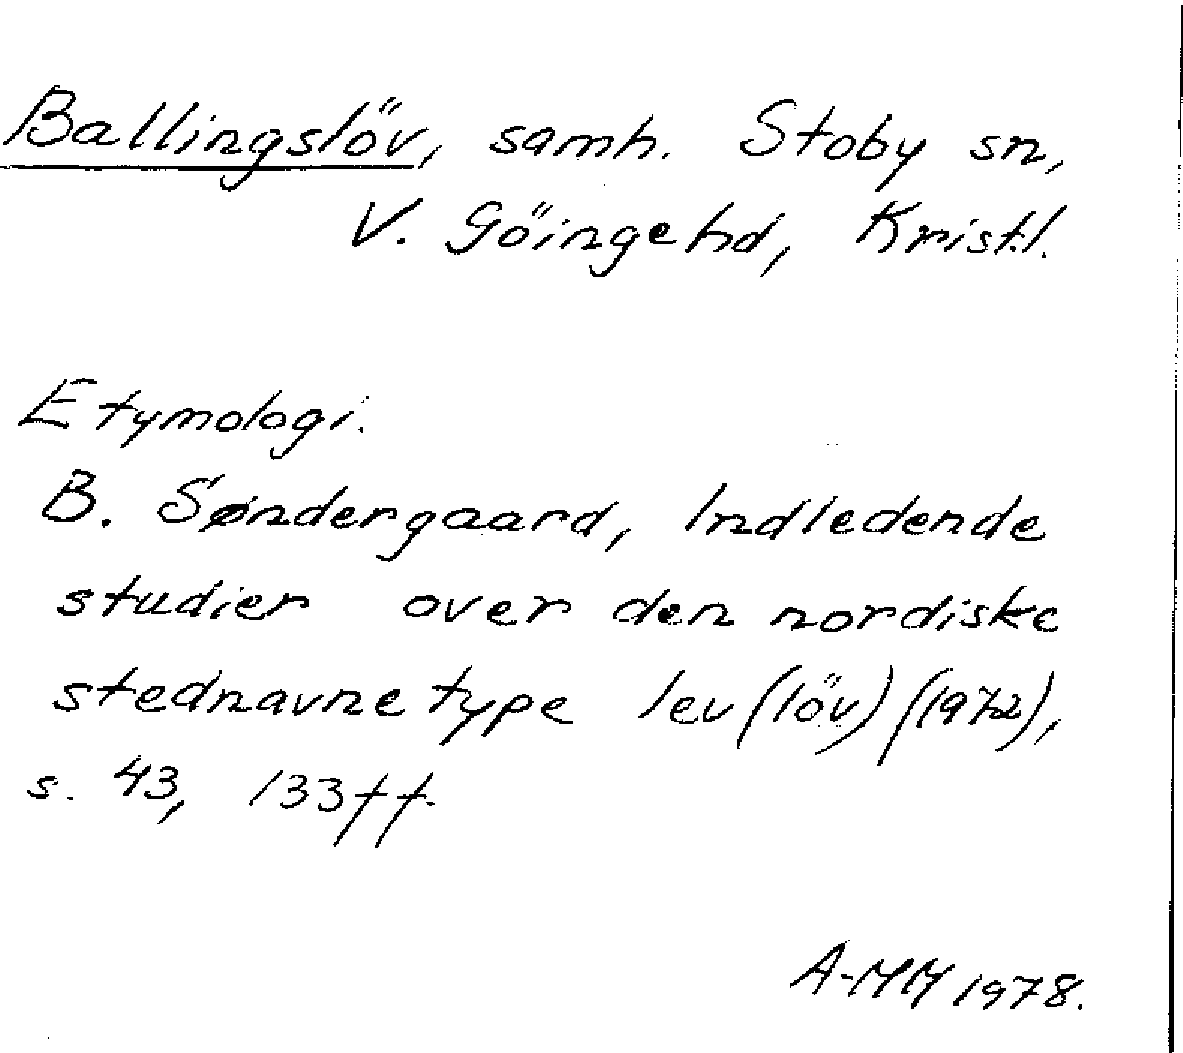 Ballingslöv, samh. Stoby sn,
V. Göinge hd, Krist.l.
Etymologi.
B. Søndergaard, Indledende
studier over den nordiske
stednavnetype lev (löv) (1972),
s. 43, 133ff.
A-MM 1978.